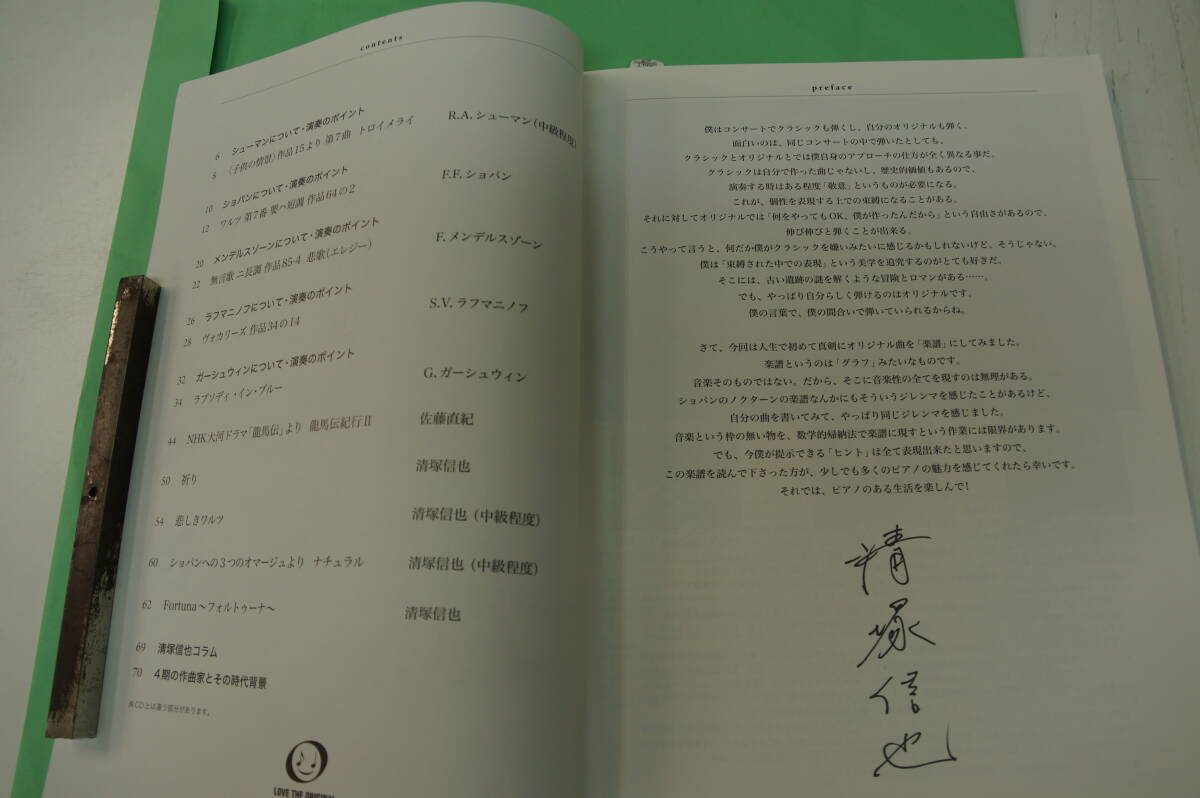 contents
6 シューマンについて・演奏のポイント
8 〈子供の情景〉作品15より 第7曲 トロイメライ R.A. シューマン(中級程度)
10 ショパンについて・演奏のポイント
12 ワルツ 第7番 嬰ハ短調 作品64の2 F.F. ショパン
20 メンデルスゾーンについて・演奏のポイント
22 無言歌 ニ長調 作品85-4 悲歌(エレジー) F. メンデルスゾーン
26 ラフマニノフについて・演奏のポイント
28 ヴォカリーズ 作品34の14 S.V. ラフマニノフ
32 ガーシュウィンについて・演奏のポイント
34 ラプソディ・イン・ブルー G. ガーシュウィン
44 NHK大河ドラマ「龍馬伝」より 龍馬伝紀行II 佐藤直紀
50 祈り 清塚信也
54 悲しきワルツ 清塚信也(中級程度)
60 ショパンへの3つのオマージュより ナチュラル 清塚信也(中級程度)
62 Fortuna〜フォルトゥーナ〜 清塚信也
69 清塚信也コラム
70 4期の作曲家とその時代背景
※CDとは違う部分があります。
LOVE THE ORIGINAL
preface
僕はコンサートでクラシックも弾くし、自分のオリジナルも弾く。
面白いのは、同じコンサートの中で弾いたとしても、
クラシックとオリジナルとでは僕自身のアプローチの仕方が全く異なる事だ。
クラシックは自分で作った曲じゃないし、歴史的価値もあるので、
演奏する時はある程度「敬意」というものが必要になる。
これが、個性を表現する上での束縛になることがある。
それに対してオリジナルでは「何をやってもOK、僕が作ったんだから」という自由さがあるので、
伸び伸びと弾くことが出来る。
こうやって言うと、何だか僕がクラシックを嫌いみたいに感じるかもしれないけど、そうじゃない。
僕は「束縛された中での表現」という美学を追究するのがとても好きだ。
そこには、古い遺跡の謎を解くような冒険とロマンがある……。
でも、やっぱり自分らしく弾けるのはオリジナルです。
僕の言葉で、僕の間合いで弾いていられるからね。
さて、今回は人生で初めて真剣にオリジナル曲を「楽譜」にしてみました。
楽譜というのは「グラフ」みたいなものです。
音楽そのものではない。だから、そこに音楽性の全てを現すのは無理がある。
ショパンのノクターンの楽譜なんかにもそういうジレンマを感じたことがあるけど、
自分の曲を書いてみて、やっぱり同じジレンマを感じました。
音楽という枠の無い物を、数学的帰納法で楽譜に現すという作業には限界があります。
でも、今僕が提示できる「ヒント」は全て表現出来たと思いますので、
この楽譜を読んで下さった方が、少しでも多くのピアノの魅力を感じてくれたら幸いです。
それでは、ピアノのある生活を楽しんで!
清塚信也